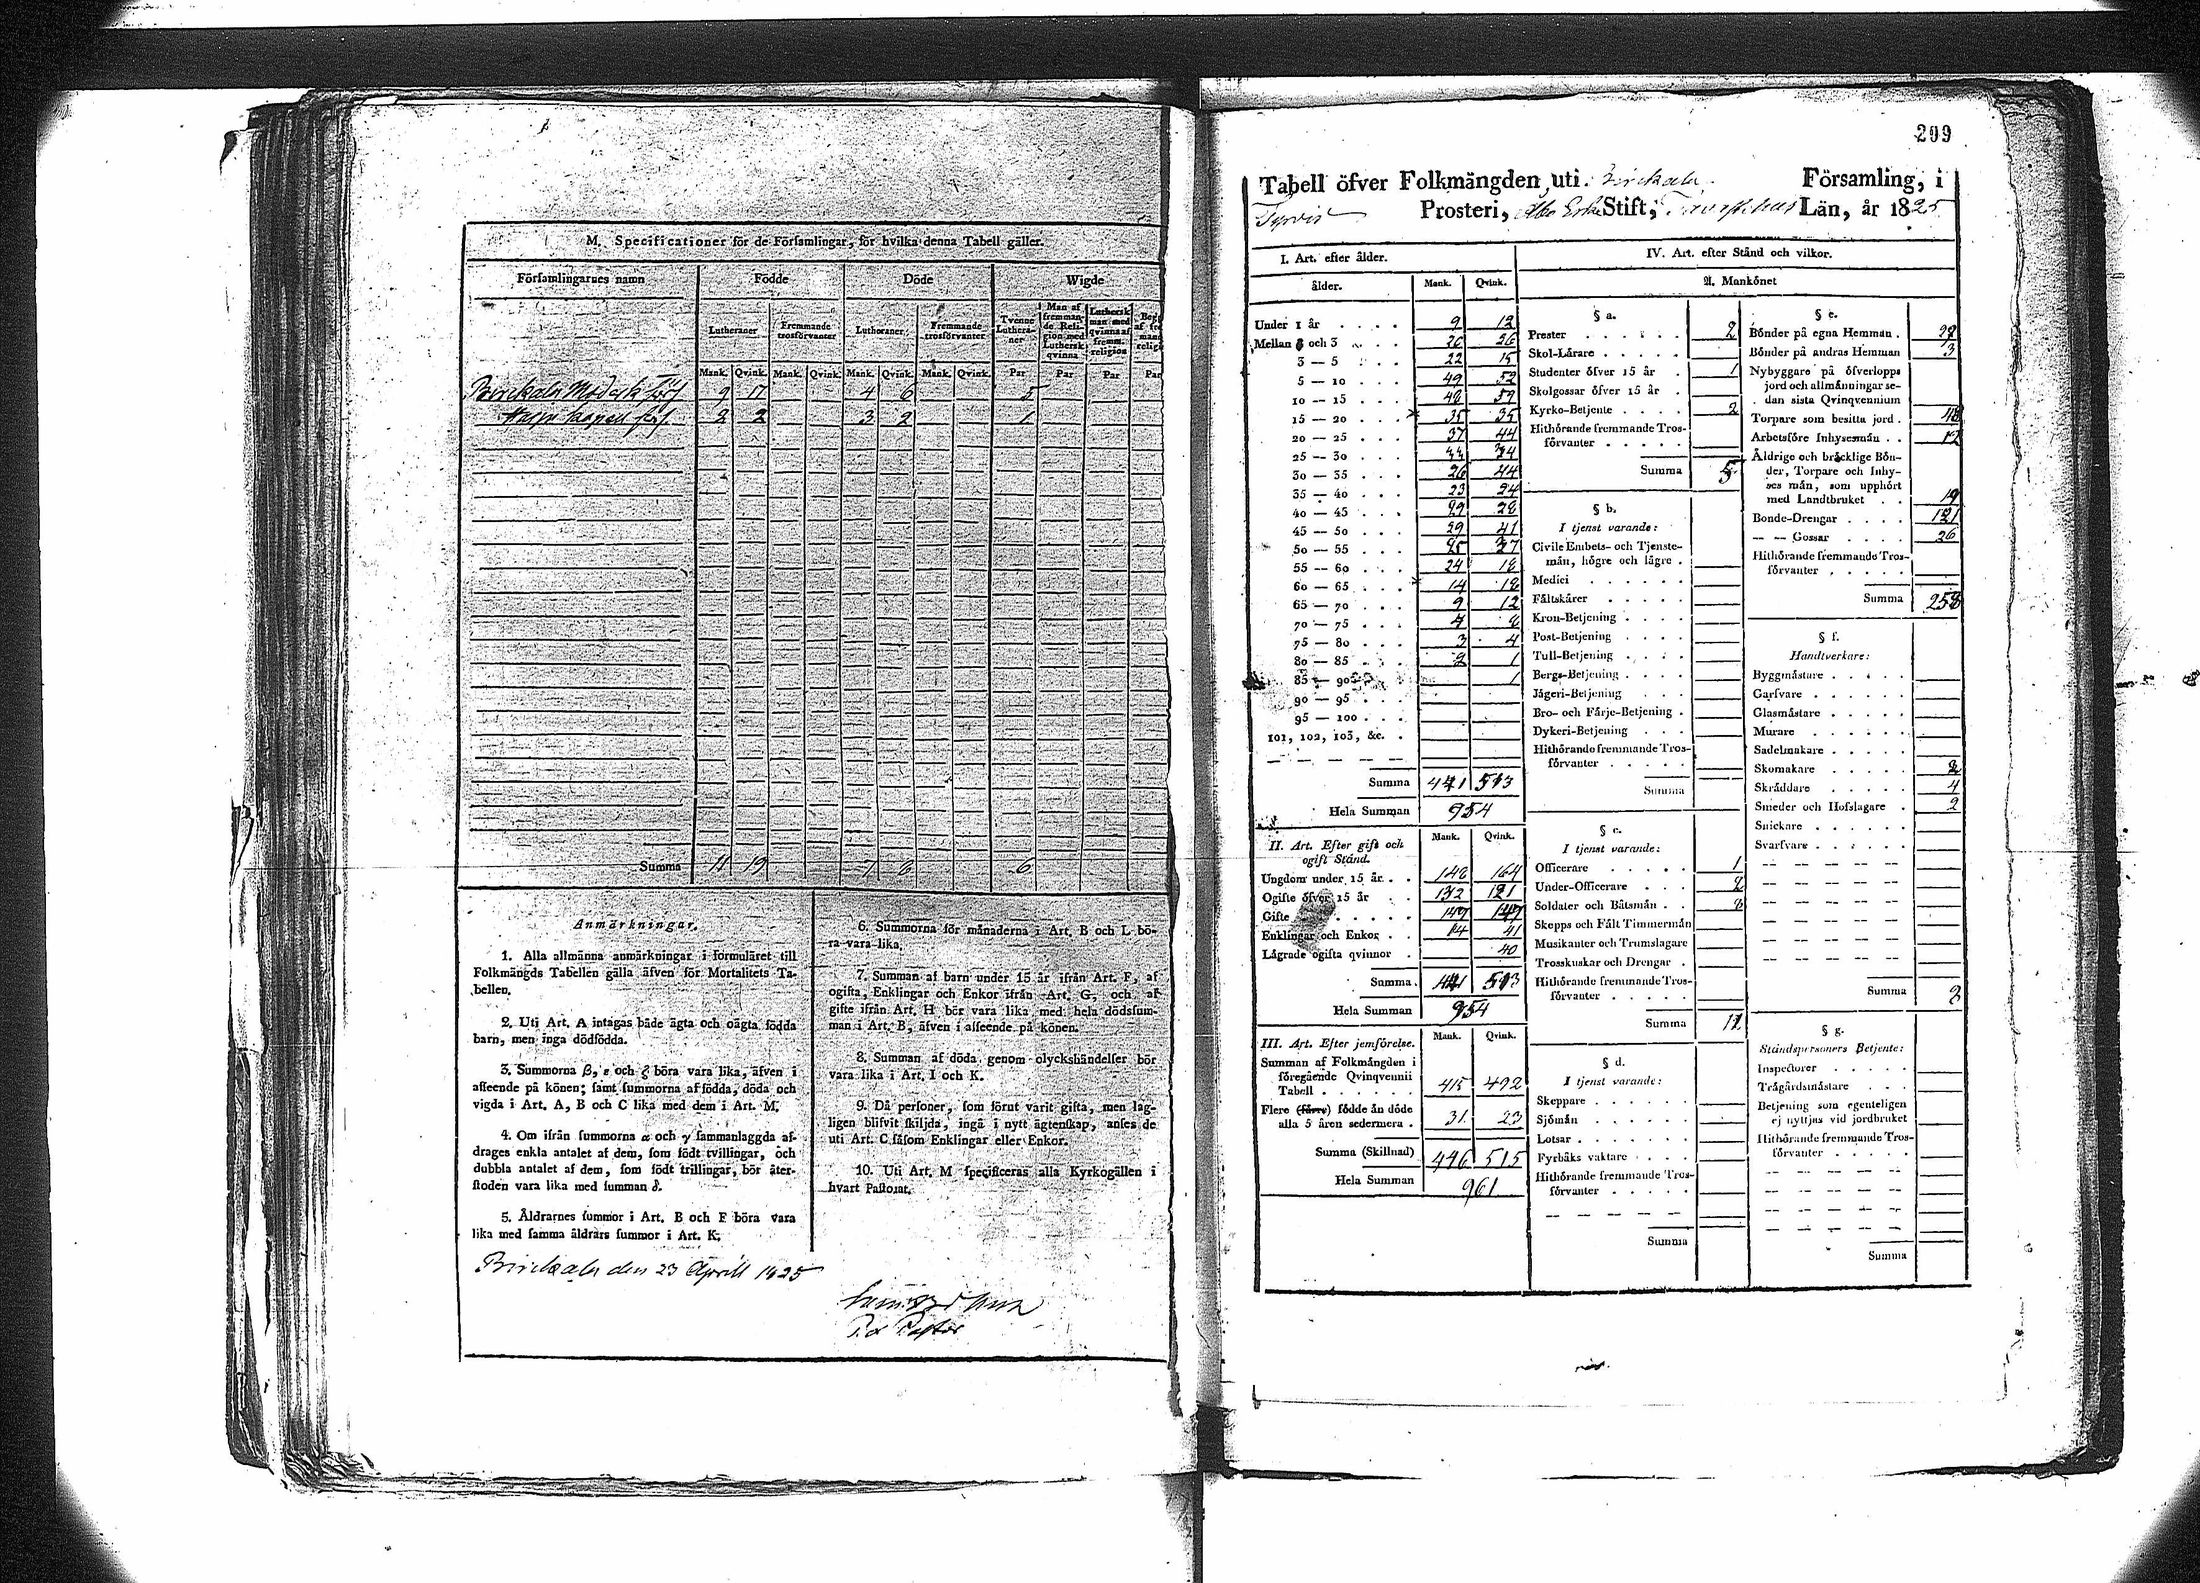 M. Specificationer för de Församlingar, för hvilka denna Tabell gäller.
Församlingarnes namn Födde Döde Wigde
Lutheraner Fremmande trosförvanter Lutheraner Fremmande trosförvanter Tvenne Lutheraner Man af fremmande Religion med Luthersk qvinna Luthersk man med qvinna af fremm. religion
Mank. Qvink. Mank. Qvink. Mank. Qvink. Mank. Qvink. Par Par Par Par
Birckala Moderk förs 9 17 4 6 5
2 2 3 2 1
Summa 11 19 7 8 6
Anmärkningar.
1. Alla allmänna anmärkningar i formuläret till
Folkmängds Tabellen gälla äfven för Mortalitets Ta-
bellen.
2. Uti Art. A intagas både ägta och oägta födda
barn, men inga dödfödda.
3. Summorna β, ε och ζ böra vara lika, äfven i
afseende på könen; samt summorna af födda, döda och
vigda i Art. A, B och C lika med dem i Art. M.
4. Om ifrån summorna α och γ sammanlagda af-
drages enkla antalet af dem, som födt tvillingar, och
dubbla antalet af dem, som födt trillingar, bör åter-
stoden vara lika med summan δ.
5. Åldrarnes summor i Art. B och F böra vara
lika med samma åldrars summor i Art. K.
6. Summorna för månaderna i Art. B och L bö-
ra vara lika.
7. Summan af barn under 15 år ifrån Art. F, af
ogifta, Enklingar och Enkor ifrån Art. G, och af
gifte ifrån Art. H bör vara lika med hela dödssum-
man i Art. B, äfven i afseende på könen.
8. Summan af döda genom olyckshändelser bör
vara lika i Art. I och K.
9. Då personer, som förut varit gifta, men lag-
ligen blifvit skiljda, ingå i nytt ägtenskap, anses de
uti Art. C såsom Enklingar eller Enkor.
10. Uti Art. M specificeras alla Kyrkogällen i
hvart Pastorat.
Birckala den 23 Aprill 1825
Pastor
209
Tabell öfver Folkmängden uti Birckala Församling, i
Tyrvis Prosteri, Åbo Erke Stift, Tavastehus Län, år 1825
I. Art. efter ålder.
ålder. Mank. Qvink.
Under 1 år 9 12
Mellan 1 och 3 26 26
3 — 5 22 15
5 — 10 49 52
10 — 15 42 59
15 — 20 35 35
20 — 25 37 44
25 — 30 33 34
30 — 35 26 44
35 — 40 23 24
40 — 45 29 28
45 — 50 29 41
50 — 55 25 37
55 — 60 24 18
60 — 65 14 18
65 — 70 9 12
70 — 75 4 8
75 — 80 3 4
80 — 85 2 1
85 — 90 1
90 — 95
95 — 100
101, 102, 103, &c.
Summa 441 513
Hela Summan 954
II. Art. Efter gift och ogift Stånd. Mank. Qvink.
Ungdom under 15 år 148 164
Ogifte öfver 15 år 132 121
Gifte 147 147
Enklingar och Enkor 14 41
Lägrade ogifta qvinnor 40
Summa 441 513
Hela Summan 954
III. Art. Efter jemförelse. Mank. Qvink.
Summan af Folkmängden i
föregående Qvinqvennii
Tabell 415 492
Flere (färre) födde än döde
alla 5 åren sedermera 31 23
Summa (Skillnad) 446 515
Hela Summan 961
IV. Art. efter Stånd och vilkor.
A. Mankönet
§ a.
Prester 2
Skol-Lärare
Studenter öfver 15 år 1
Skolgossar öfver 15 år
Kyrko-Betjente 2
Hithörande fremmande Tros-
förvanter
Summa 5
§ b.
I tjenst varande:
Civile Embets- och Tjenste-
män, högre och lägre
Medici
Fältskärer
Kron-Betjening
Post-Betjening
Tull-Betjening
Bergs-Betjening
Jägeri-Betjening
Bro- och Färje-Betjening
Dykeri-Betjening
Hithörande fremmande Tros-
förvanter
Summa
§ c.
I tjenst varande:
Officerare 1
Under-Officerare 2
Soldater och Båtsmän 8
Skepps och Fält Timmermän
Musikanter och Trumslagare
Trosskuskar och Drengar
Hithörande fremmande Tros-
förvanter
Summa 11
§ d.
I tjenst varande:
Skeppare
Sjömän
Lotsar
Fyrbåks vaktare
Hithörande fremmande Tros-
förvanter
Summa
§ e.
Bönder på egna Hemman
Bönder på andras Hemman 3
Nybyggare på öfverlopps
jord och allmänningar se-
dan sista Qvinqvennium
Torpare som besitta jord 48
Arbetsföre Inhysesmän 12
Åldrige och bräcklige Bön-
der, Torpare och Inhy-
ses män, som upphört
med Landtbruket 19
Bonde-Drengar 121
— — Gossar 26
Hithörande fremmande Tros-
förvanter
Summa 258
§ f.
Handtverkare:
Byggmästare
Garfvare
Glasmästare
Murare
Sadelmakare
Skomakare 2
Skräddare 4
Smeder och Hofslagare 2
Snickare
Svarfvare
Summa
§ g.
Ståndspersoners Betjente:
Inspectorer
Trägårdsmästare
Betjening som egenteligen
ej nyttjas vid jordbruket
Hithörande fremmande Tros-
förvanter
Summa